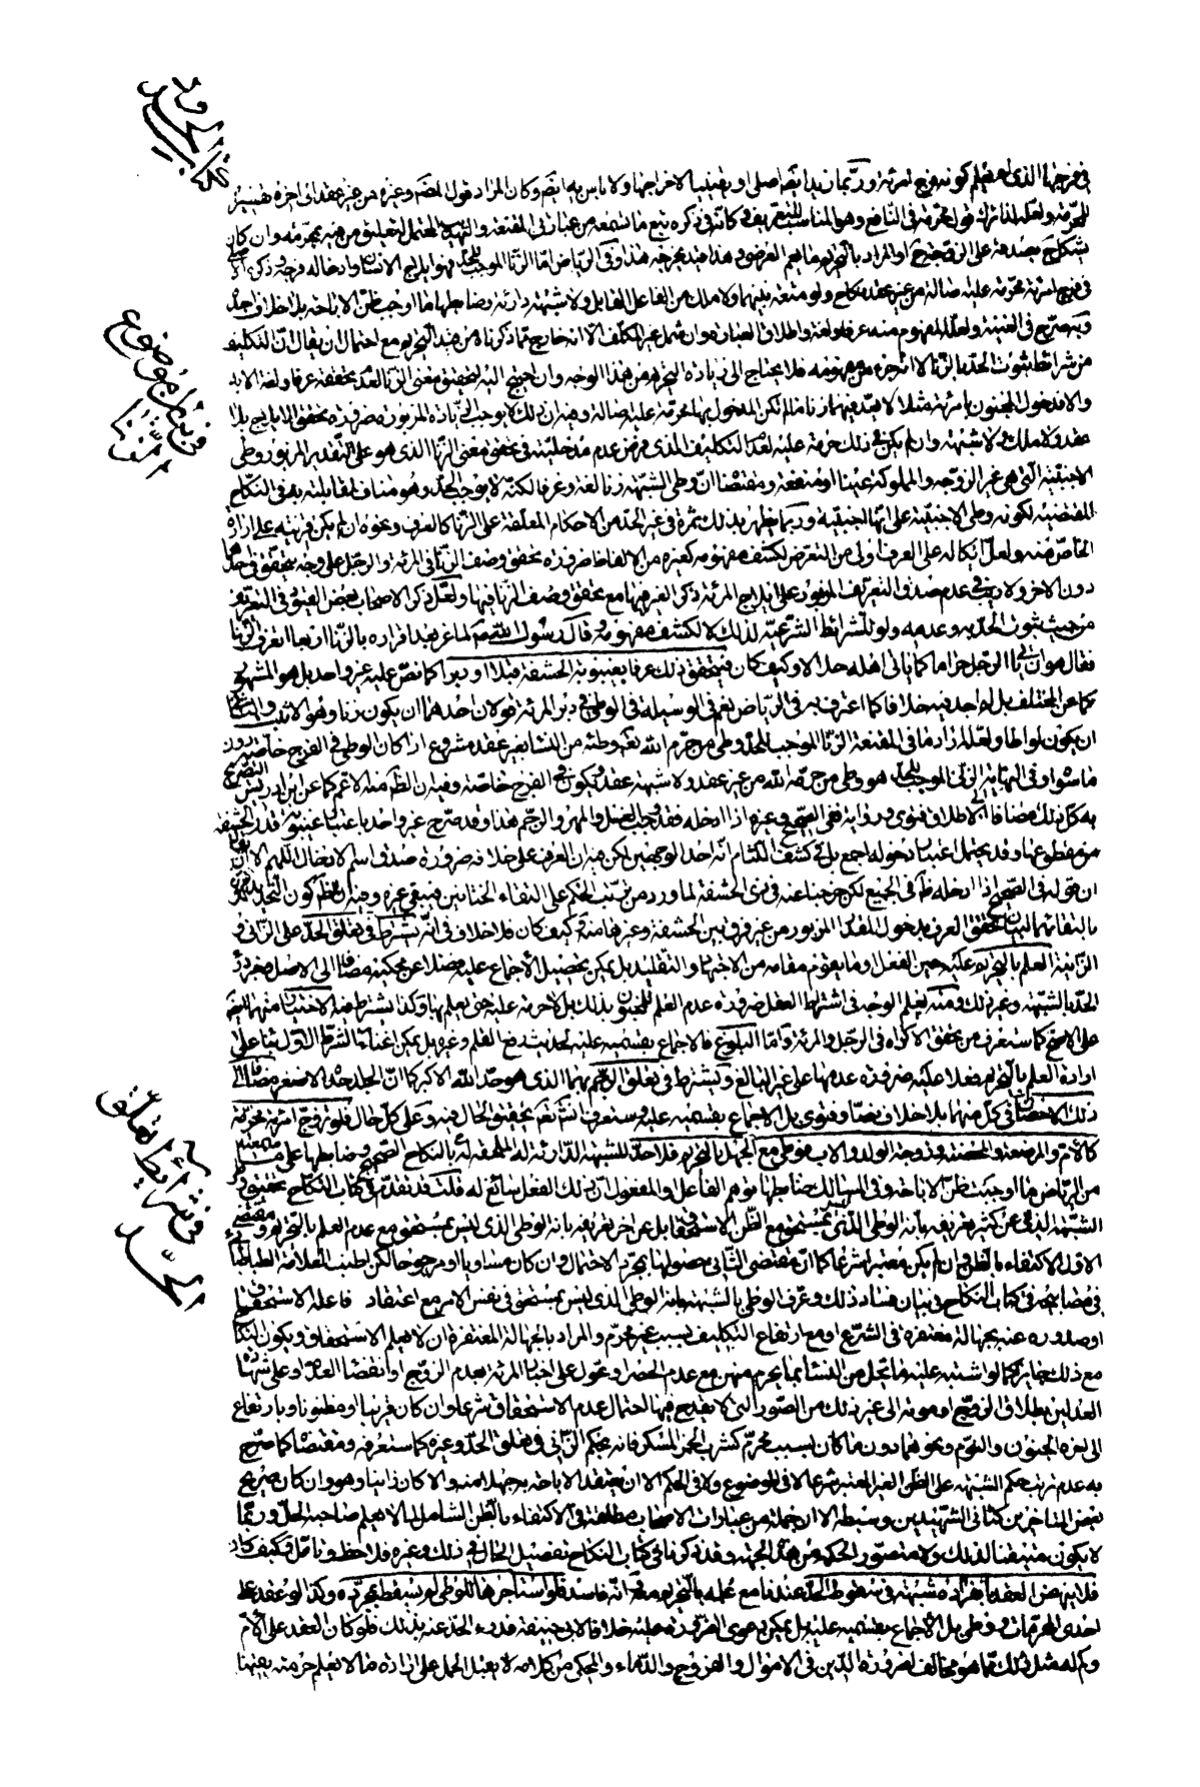 في فرجها الذي لم يعلم كونه فرج امرئة وربما زيد ايضا اصلي او يقينيا لاخراجها ولا باس به ايضا وكان المراد قول المصنف وغيره من غير عقد الى اخره تفسير
للمحرمة ولعله لذا ترك قول محرمة في النافع وهو المناسب للتعريف كانه في ذكره تبع ما سمعته من عبارتي المقنعة والنهاية المحتمل لتعليق من فيه بمحرمة وان كان
في فرج امرئة محرمة عليه اصالة من غير عقد نكاح ولو متعة بينهما ولا ملك من الفاعل القابل ولا شبهة دارئة وضابطها ما اوجب ظن الاباحة بلا خلاف اجده
وبه صرح في الغنية ولعله المفهوم منه عرفا ولغة واطلاق العبارة وان شمل غير المكلف الا انه خارج بما ذكرناه من قيد التحريم مع احتمال ان يقال ان التكليف
من شرائط ثبوت الحد بالزنا لا انه جزء من مفهومه فلا يحتاج الى زيادة التحريم من هذا الوجه وان احتيج اليه لتحقيق معنى الزنا لعدم تحققه عرفا ولغة الا به
والا فدخول المجنون بامرئة مثلا لا يعد فيهما زنا ما لم تكن المدخول بها محرمة عليه اصالة وفيه ان ذلك لا يوجب الزيادة المزبورة ضرورة تحقق الايلاج بلا
عقد ولا ملك ولا شبهة وان لم يكن في ذلك حرمة عليه لعدم التكليف الذي فرض عدم مدخليته في تحقق معنى الزنا الذي هو على التقدير المزبور وطي
الاجنبية التي هي غير الزوجة والمملوكة عينا او منفعة ومقتضاه ان وطي الشبهة زنا لغة وعرفا لكنه لا يوجب الحد وهو مناف لمقابلته به في النكاح
المقتضية لكونه وطي الاجنبية على انها اجنبية وربما يظهر بذلك ثمرة في غير الحد من الاحكام المعلقة على الزنا كالعرف ونحوه ان لم يكن قرينة على ارادة
الخاص منه ولعل ايكاله على العرف اولى من التعرض لكشف مفهومه كغيره من الالفاظ ضرورة تحقق وصف الزنا في المرئة والرجل على وجه يتحقق في احدهما
دون الاخر ولا ريب في عدم صدق التعريف المزبور على ايلاج المرئة ذكر الغير فيها مع تحقق وصف الزنا فيها ولعل ذكر الاصحاب بعض القيود في التعريف
من حيث ثبوت الحد به وعدمه ولو للشرائط الشرعية لذلك لا لكشف مفهومه وقال رسول الله لماعز بعد اقراره بالزنا اربعا اتعرف الزنا
فقال هو ان ياتي الرجل حراما كما ياتي اهله حلالا وكيف كان فيتحقق ذلك عرفا بغيبوبة الحشفة قبلا او دبرا كما نص عليه غير واحد بل هو المشهور
كما عن المختلف بل لم اجد فيه خلافا كما اعترف به في الرياض نعم في الوسيلة في الوطي في دبر المرئة قولان احدهما ان يكون زنا وهو الاثبت والثاني
ان يكون لواطا ولعله اراد ما في المقنعة الزنا الموجب للحد وطي من حرم الله تعالى وطئه من النساء بغير عقد مشروع اذا كان الوطي في الفرج خاصة دون
ما سواه وفي النهاية الزنا الموجب للحد هو وطي من حرمه الله من غير عقد ولا شبهة عقد ويكون في الفرج خاصة وفيه ان الظاهر منه الاعم كما عن ابن ادريس التصريح
به كل ذلك مضافا الى الاطلاق فتوى ورواية ففي الصحيح وغيره اذا ادخله فقد وجب الغسل والمهر والرجم هذا وقد صرح غير واحد باعتبار غيبوبة قدر الحشفة
من مقطوعها وقد يحتمل اعتبار دخوله اجمع بل في كشف اللثام انه احد الوجهين لكن فيه ان العرف على خلافه ضرورة صدق اسم الادخال اللهم الا ان
ان قوله في الصحيح اذا ادخله ظاهر في الجميع لكن خرجنا عنه في ذي الحشفة لما ورد من ترتب الحكم على التقاء الختانين فيبقى غيره وفيه ان الظاهر كون التحديد
بالتقائهما لبيان تحقق العرف بدخول المقدار المزبور من غير فرق بين الحشفة وغيرها منه وكيف كان فلا خلاف في انه يشترط في تعلق الحد على الزاني و
الزانية العلم بالتحريم عليه حين الفعل او ما يقوم مقامه من الاجتهاد والتقليد بل يمكن تحصيل الاجماع عليه فضلا عن محكيه مضافا الى الاصل
الحد بالشبهة وغير ذلك ومنه يعلم الوجه في اشتراط العقل ضرورة عدم العلم للمجنون بذلك بل لا حرمة عليه حتى يعلم بها وكذا يشترط فيه الاختيار فيهما
على الاصح كما ستعرف من تحقق الاكراه في الرجل والمرئة واما البلوغ فالاجماع بقسميه عليه لحديث رفع القلم وغيره بل يمكن اغناء الشرط الاول بناء على
ارادة العلم بالتحريم فعلا عليه ضرورة عدمها على غير البالغ ويشترط في تعلق الرجم بهما الذي هو حد الله الاكبر كما ان الجلد حده الاصغر مضافا الى
ذلك الاحصان في كل منهما بلا خلاف نصا وفتوى بل الاجماع بقسميه عليه وستعرف انشاء الله تحقيق الحال فيه وعلى كل حال فلو تزوج امرئة محرمة
كالام والمرضعة والمحصنة وزوجة الولد والاب فوطي مع الجهل بالتحريم فلا حد للشبهة الدارئة له الملحقة له بالنكاح الصحيح وضابطها على
من الرياض ما اوجبت ظن الاباحة وفي المسالك ضابطها توهم الفاعل والمفعول ان ذلك الفعل سائغ له قلت قد تقدم في كتاب النكاح تحقيق
الشبهة الذي عن كثير تعريفه بانه الوطي الذي ليس بمستحق مع ظن الاستحقاق قابل عن اخر تعريفه بانه الوطي الذي ليس بمستحق مع عدم العلم بالتحريم و
الاول الاكتفاء بالظن وان لم يكن معتبرا شرعا كما ان مقتضى الثاني حصولها بمجرد الاحتمال وان كان مساويا او مرجوحا لكن اطنب العلامة الطباطبائي
في مصابيحه في كتاب النكاح في بيان فساد ذلك وعرف الوطي بالشبهة بانه الوطي الذي ليس بمستحق في نفس الامر مع اعتقاد فاعله الاستحقاق
او صدوره عنه بجهالة مغتفرة في الشرع او مع ارتفاع التكليف بسبب غير محرم والمراد بالجهالة المغتفرة ان لا يعلم الاستحقاق ويكون النكاح
مع ذلك جايزا كما لو اشتبه عليه ما يحل من النساء بما يحرم منهن مع عدم الحصر او عول على اخبار المرئة بعدم الزوج او انقضاء العدة او على شهادة
العدلين بطلاق الزوج او موته الى غير ذلك من الصور التي لا يقدح فيها احتمال عدم الاستحقاق شرعا وان كان قريبا او مظنونا وبارتفاع
الى عروه الجنون والنوم ونحوهما دون ما كان بسبب محرم كشرب الخمر المسكر فانه بحكم الزاني في تعلق الحد وغيره كما ستعرفه ومقتضاه كما صرح
به عدم ترتب حكم الشبهة على الظن الغير المعتبر شرعا لا في الموضوع ولا في الحكم الا ان يعتقد الاباحة به جهلا منه والا كان زانيا وهو وان كان صريح
بعض المتاخرين كثاني الشهيدين وسبطه الا ان جملة من عبارات الاصحاب مطلقة في الاكتفاء بالظن الشامل لما لا يعلم صاحبه الحل وربما
لا يكون متنبها لذلك ولا متصور الحكم من هذه الجهة وقد ذكرنا في كتاب النكاح تفصيل الحال في ذلك وغيره فلاحظ وتامل وكيف كان
فلا ينهض العقد بانفراده شبهة في سقوط الحد عندنا مع علمه بالتحريم معه وانه فاسد فلو استاجرها للوطي لم يسقط بمجرده وكذا لو عقد على
احدى المحرمات ووطي بل الاجماع بقسميه عليه بل يمكن دعوى الضرورة عليه خلافا لابي حنيفة فدرء الحد عنه بذلك فلو كان العقد على الام
وكم له مثل ذلك مما هو مخالف لضرورة الدين في الاموال والفروج والدماء والمحكي من كلامه لا يقبل الحمل على ارادة ما لا يعلم حرمته بعينها
في بيان موضوع الزنا
في شرائط تعلق الحد